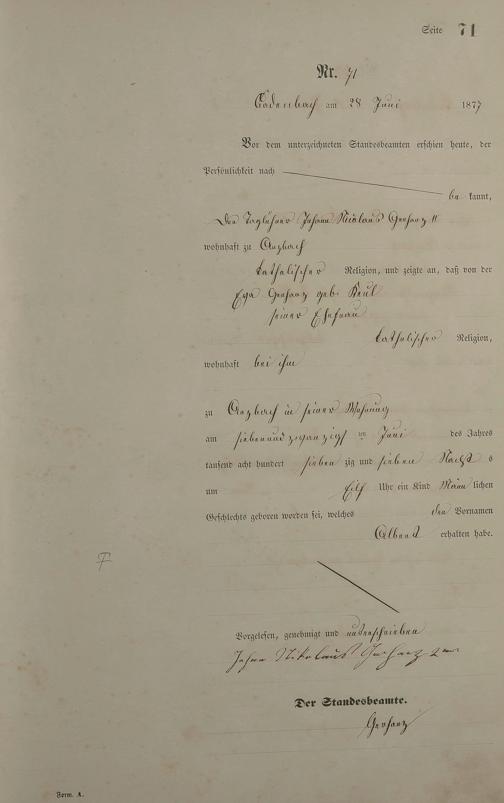 Seite 71
Nr. 71
Cadenbach am 28 Juni 1877
Vor dem unterzeichneten Standesbeamten erschien heute, der
Persönlichkeit nach
be kannt,
Der Taglöhner Johann Nicolaus Gerharz II
wohnhaft zu Arzbach
katholischer Religion, und zeigte an, daß von der
Eva Gerharz geb. Keul
seiner Ehefrau
katholischer Religion,
wohnhaft bei ihm
zu Arzbach in seiner Wohnung
am siebenundzwanzigst en Juni des Jahres
tausend acht hundert sieben zig und sieben Nacht s
um Eilf Uhr ein Kind Männ lichen
Geschlechts geboren worden sei, welches den Vornamen
Albert erhalten habe.
Vorgelesen, genehmigt und unterschrieben
Johann Nikolaus Gerharz
Der Standesbeamte.
Gerharz
Form. A.